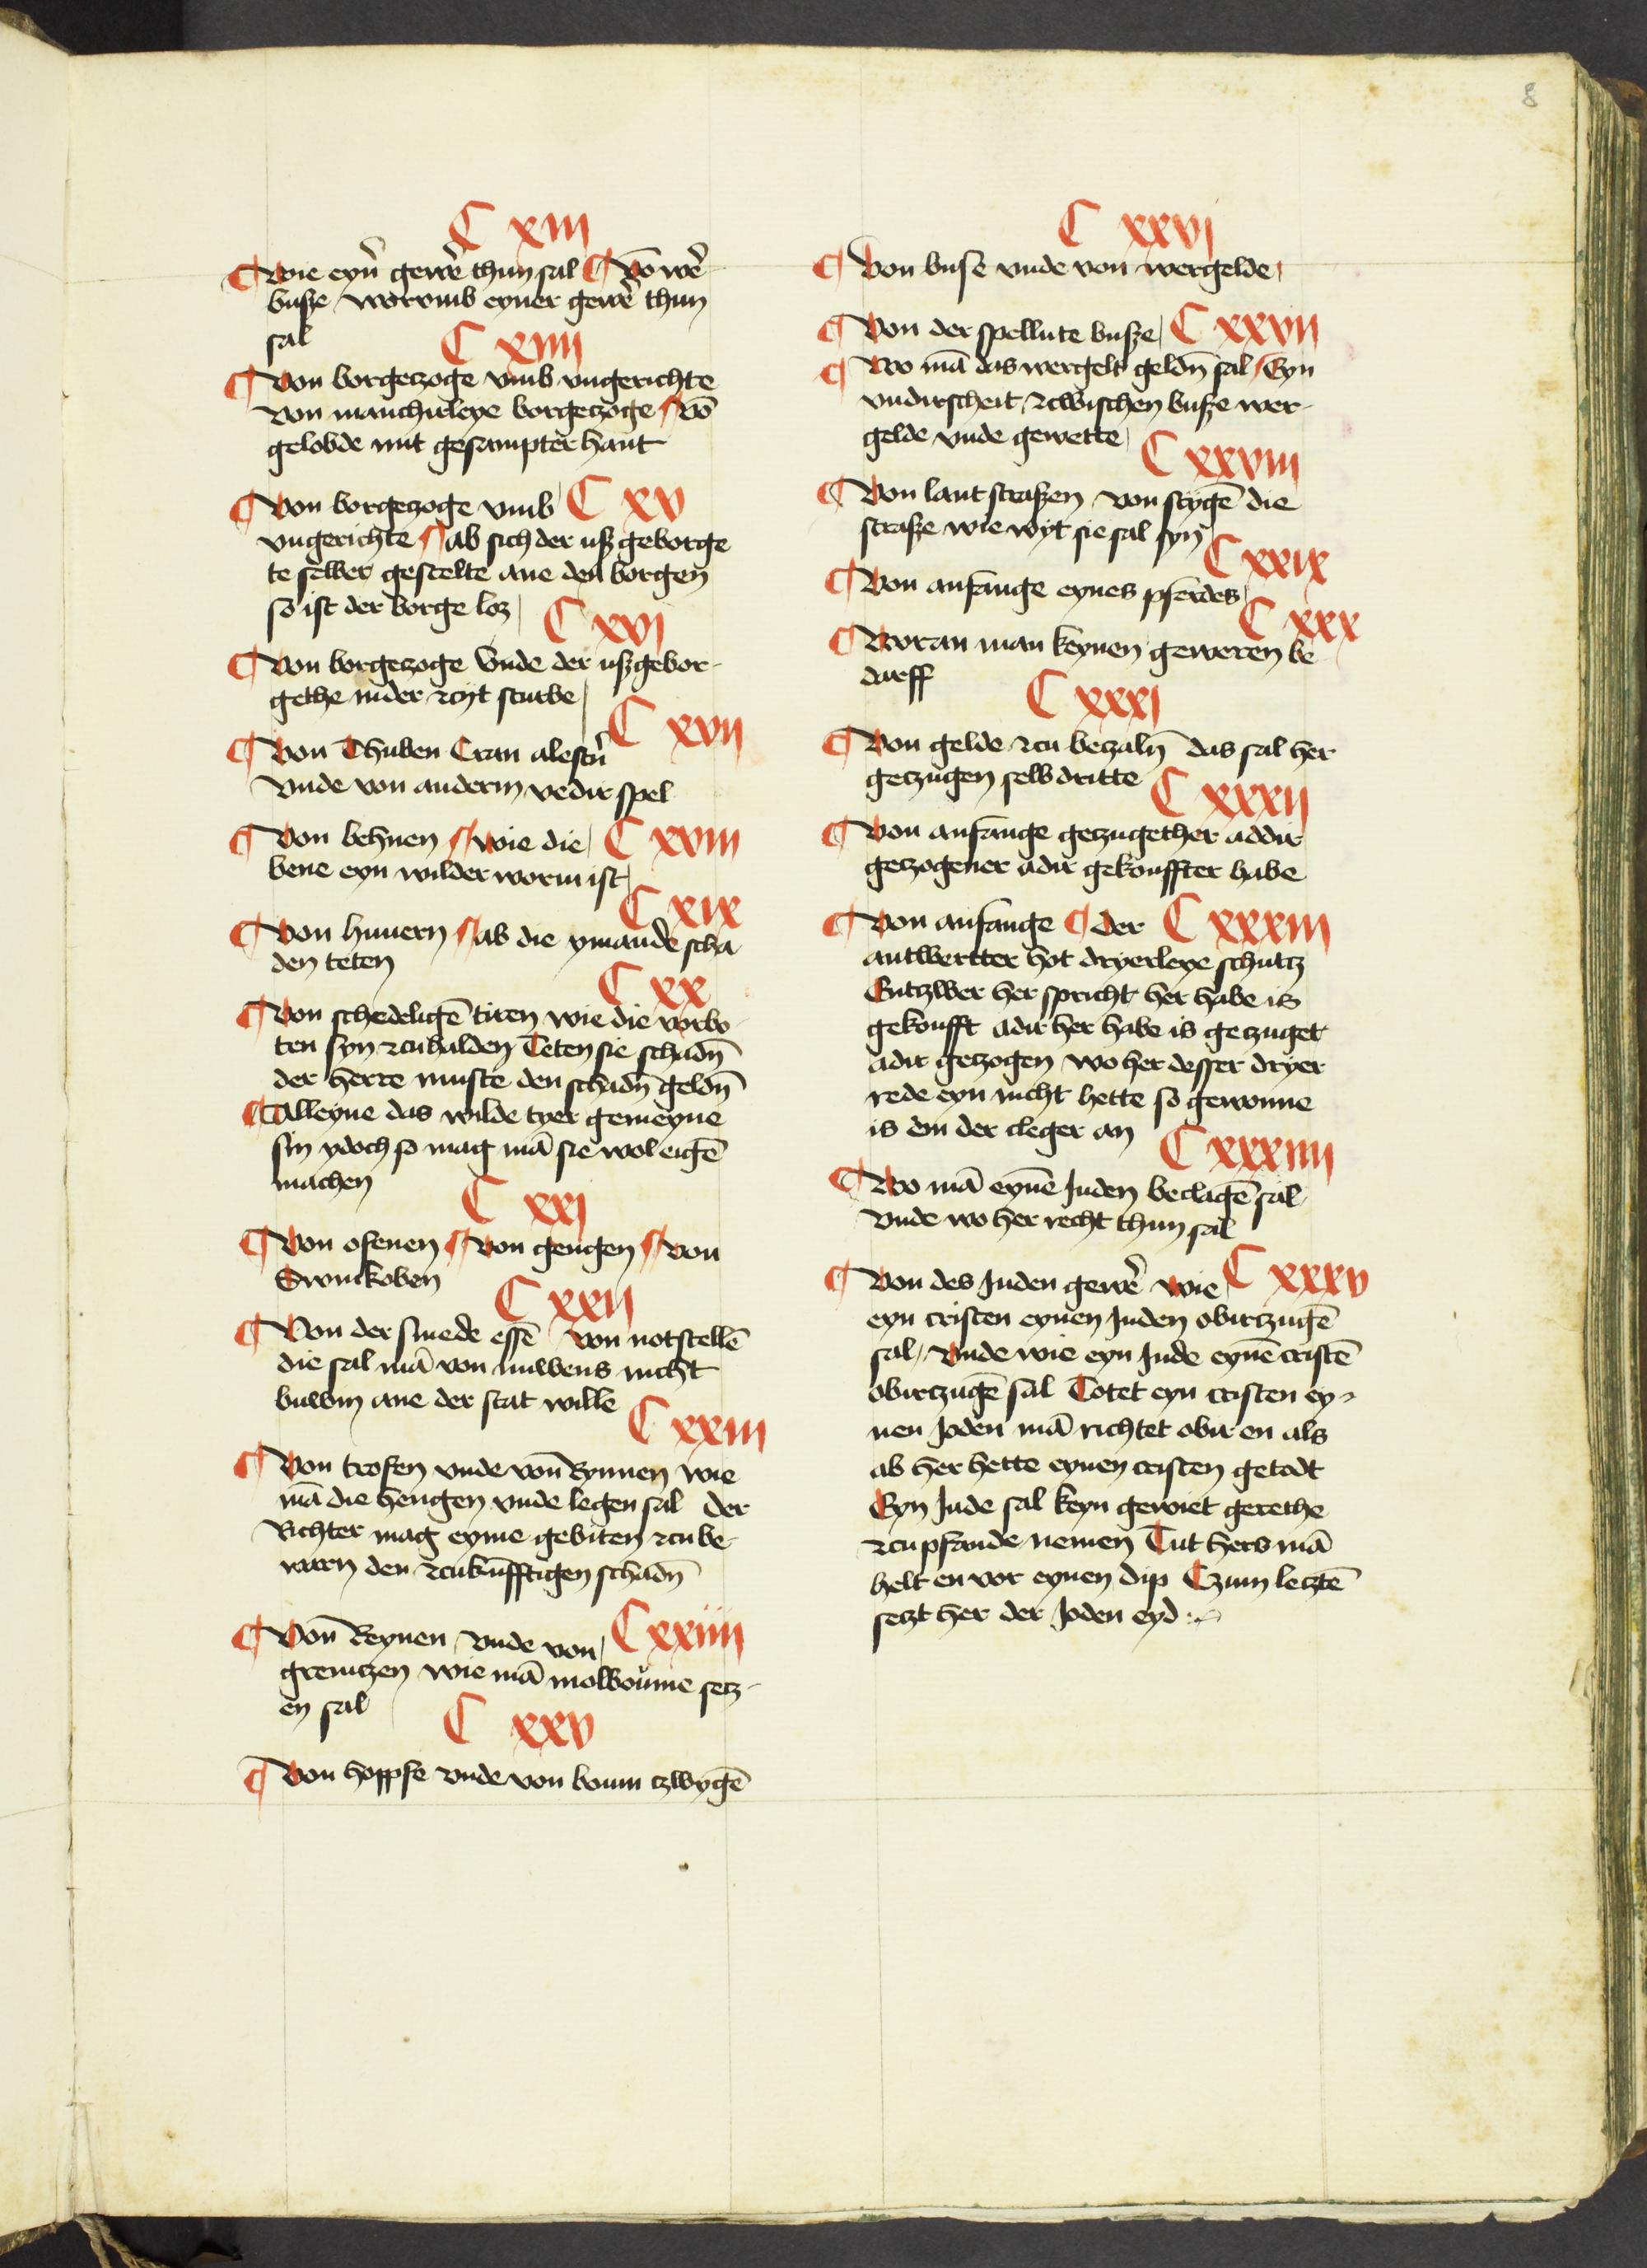 8
C xiii
¶ Wie eyn̄ gewē thun sal ¶ Vō wē
busze worvmb eyner gewē thun
sal
C xiiii
¶ Von borgeczoge vmb vngerichte
Von manchirleye borgeczoge ¶ Vō
gelobde mit gesampter hant
¶ Von borgeczoge vmb C xv
vngerichte ¶ ab sich der usz geborge
te selber gestelte ane den borgen
so ist der borge loz
C xvi
¶ Von borgeczoge Vnde der uszgebor-
gethe inder zcijt sturbe
C xvii
¶ Von Thuben Cran alestern̄
Vnde von anderm vedir spel
¶ Von behnen ¶ wie die C xviii
bene eyn wilder worm ist
C xix
¶ Von hunern ¶ ab die ymande scha
den teten
C xx
¶ Von schedeligē tiren wie die vorbo-
ten syn zcuhalden Teten sie schadn̄
der herre muste den schadn̄ geldn̄
¶ Alleyne das wilde tyer gemeyne
sin ydoch so mag mā sie wol eigē
machen
C xxi
¶ Von ofenen ¶ Von gengen ¶ Von
Swinkoben
C xxii
¶ Von der smede essē von notstellē
die sal mā von nuwens nicht
buwen ane der stat wille
C xxiii
¶ Von trofen vnde von̄ Rynnen wie
mā die hengen vnde legen sal der
Richter mag eyme gebiten zcu be-
waren den zcukunfftigen schadn̄
¶ Von̄ Reynen vnde von C xxiiii
grenitzen wie mā molboume setz-
en sal
C xxv
¶ Von hoppfe vnde von boum czwygē
C xxvi
¶ Von buse vnde von wergelde
¶ Von der spellute busze C xxvii
¶ Wo mā das wergelt geldn̄ sal ¶ Eyn
vndirscheit zcwischen busze wer-
gelde vnde gewette
C xxviii
¶ Von lantstraszen von stygē die
strasze wie wyt sie sal syn
C xxix
¶ Von anfange eynes pferdes
C xxx
¶ Woran man keynen geweren be
darff
C xxxi
¶ Von gelde zcu betzaln̄ das sal her
getzugen selb dritte
C xxxii
¶ Von anfange getzugether addir
getzogener adir gekouffter habe
¶ Von anfange ¶ der C xxxiii
antwertter hot dryerleye schutz
Entzwer her spricht her habe is
gekoufft adir her habe is getzuget
adir getzogen wo her desser dryer
rede eyn nicht hette so gewonne
is em der cleger an
C xxxiiii
¶ Wo mā eynē Juden beclagē sal
Vnde wo her recht thun sal
¶ Von des Juden gewē wie C xxxv
eyn cristen eynen Juden obirtzugē
sal Vnde wie eyn Jude eynē cristē
obirtzugē sal Totet eyn cristen ey-
nen Joden mā richtet obir en als
ab her hette eynen cristen getodt
Eyn Jude sal keyn gewiet gerethe
zcu pfande nemen Tut hers mā
helt en vor eynen dip Czum letztē
setzt her der Joden eyd